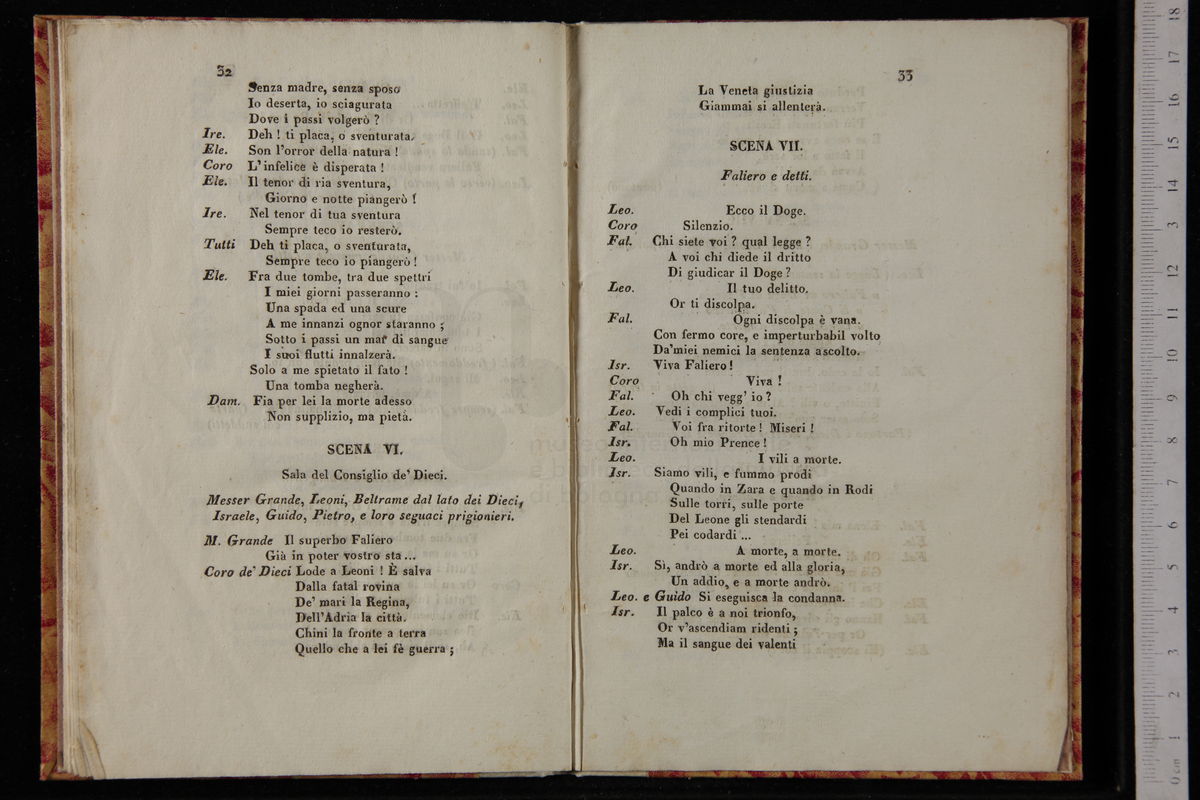 32
Senza madre, senza sposo
Io deserta, io sciagurata
Dove i passi volgerò ?
Ire. Deh ! ti placa, o sventurata.
Ele. Son l'orror della natura !
Coro L'infelice è disperata !
Ele. Il tenor di ria sventura,
Giorno e notte piangerò !
Ire. Nel tenor di tua sventura
Sempre teco io resterò.
Tutti Deh ti placa, o sventurata,
Sempre teco io piangerò !
Ele. Fra due tombe, tra due spettri
I miei giorni passeranno :
Una spada ed una scure
A me innanzi ognor staranno ;
Sotto i passi un mar di sangue
I suoi flutti innalzerà.
Solo a me spietato il fato !
Una tomba negherà.
Dam. Fia per lei la morte adesso
Non supplizio, ma pietà.
SCENA VI.
Sala del Consiglio de' Dieci.
Messer Grande, Leoni, Beltrame dal lato dei Dieci,
Israele, Guido, Pietro, e loro seguaci prigionieri.
M. Grande Il superbo Faliero
Già in poter vostro sta ...
Coro de' Dieci Lode a Leoni ! È salva
Dalla fatal rovina
De' mari la Regina,
Dell'Adria la città.
Chini la fronte a terra
Quello che a lei fè guerra ;
33
La Veneta giustizia
Giammai si allenterà.
SCENA VII.
Faliero e detti.
Leo. Ecco il Doge.
Coro Silenzio.
Fal. Chi siete voi ? qual legge ?
A voi chi diede il dritto
Di giudicar il Doge ?
Leo. Il tuo delitto.
Or ti discolpa.
Fal. Ogni discolpa è vana.
Con fermo core, e imperturbabil volto
Da'miei nemici la sentenza ascolto.
Isr. Viva Faliero !
Coro Viva !
Fal. Oh chi vegg' io ?
Leo. Vedi i complici tuoi.
Fal. Voi fra ritorte ! Miseri !
Isr. Oh mio Prence !
Leo. I vili a morte.
Isr. Siamo vili, e fummo prodi
Quando in Zara e quando in Rodi
Sulle torri, sulle porte
Del Leone gli stendardi
Pei codardi ...
Leo. A morte, a morte.
Isr. Sì, andrò a morte ed alla gloria,
Un addio, e a morte andrò.
Leo. e Guido Si eseguisca la condanna.
Isr. Il palco è a noi trionfo,
Or v'ascendiam ridenti ;
Ma il sangue dei valenti